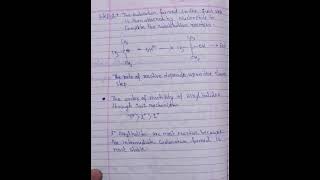 Step 2 : The carbocation formed in the first step
is then attacked by nucleophile to
complete the substitution reaction.
CH3 CH3
CH3 CH3
The rate of reaction depends upon the slow
step.
• The order of reactivity of alkyl halides
through SN1 mechanism
3° > 2° > 1°
3° alkyl halides are most reactive because
the intermediate carbocation formed is
most stable.